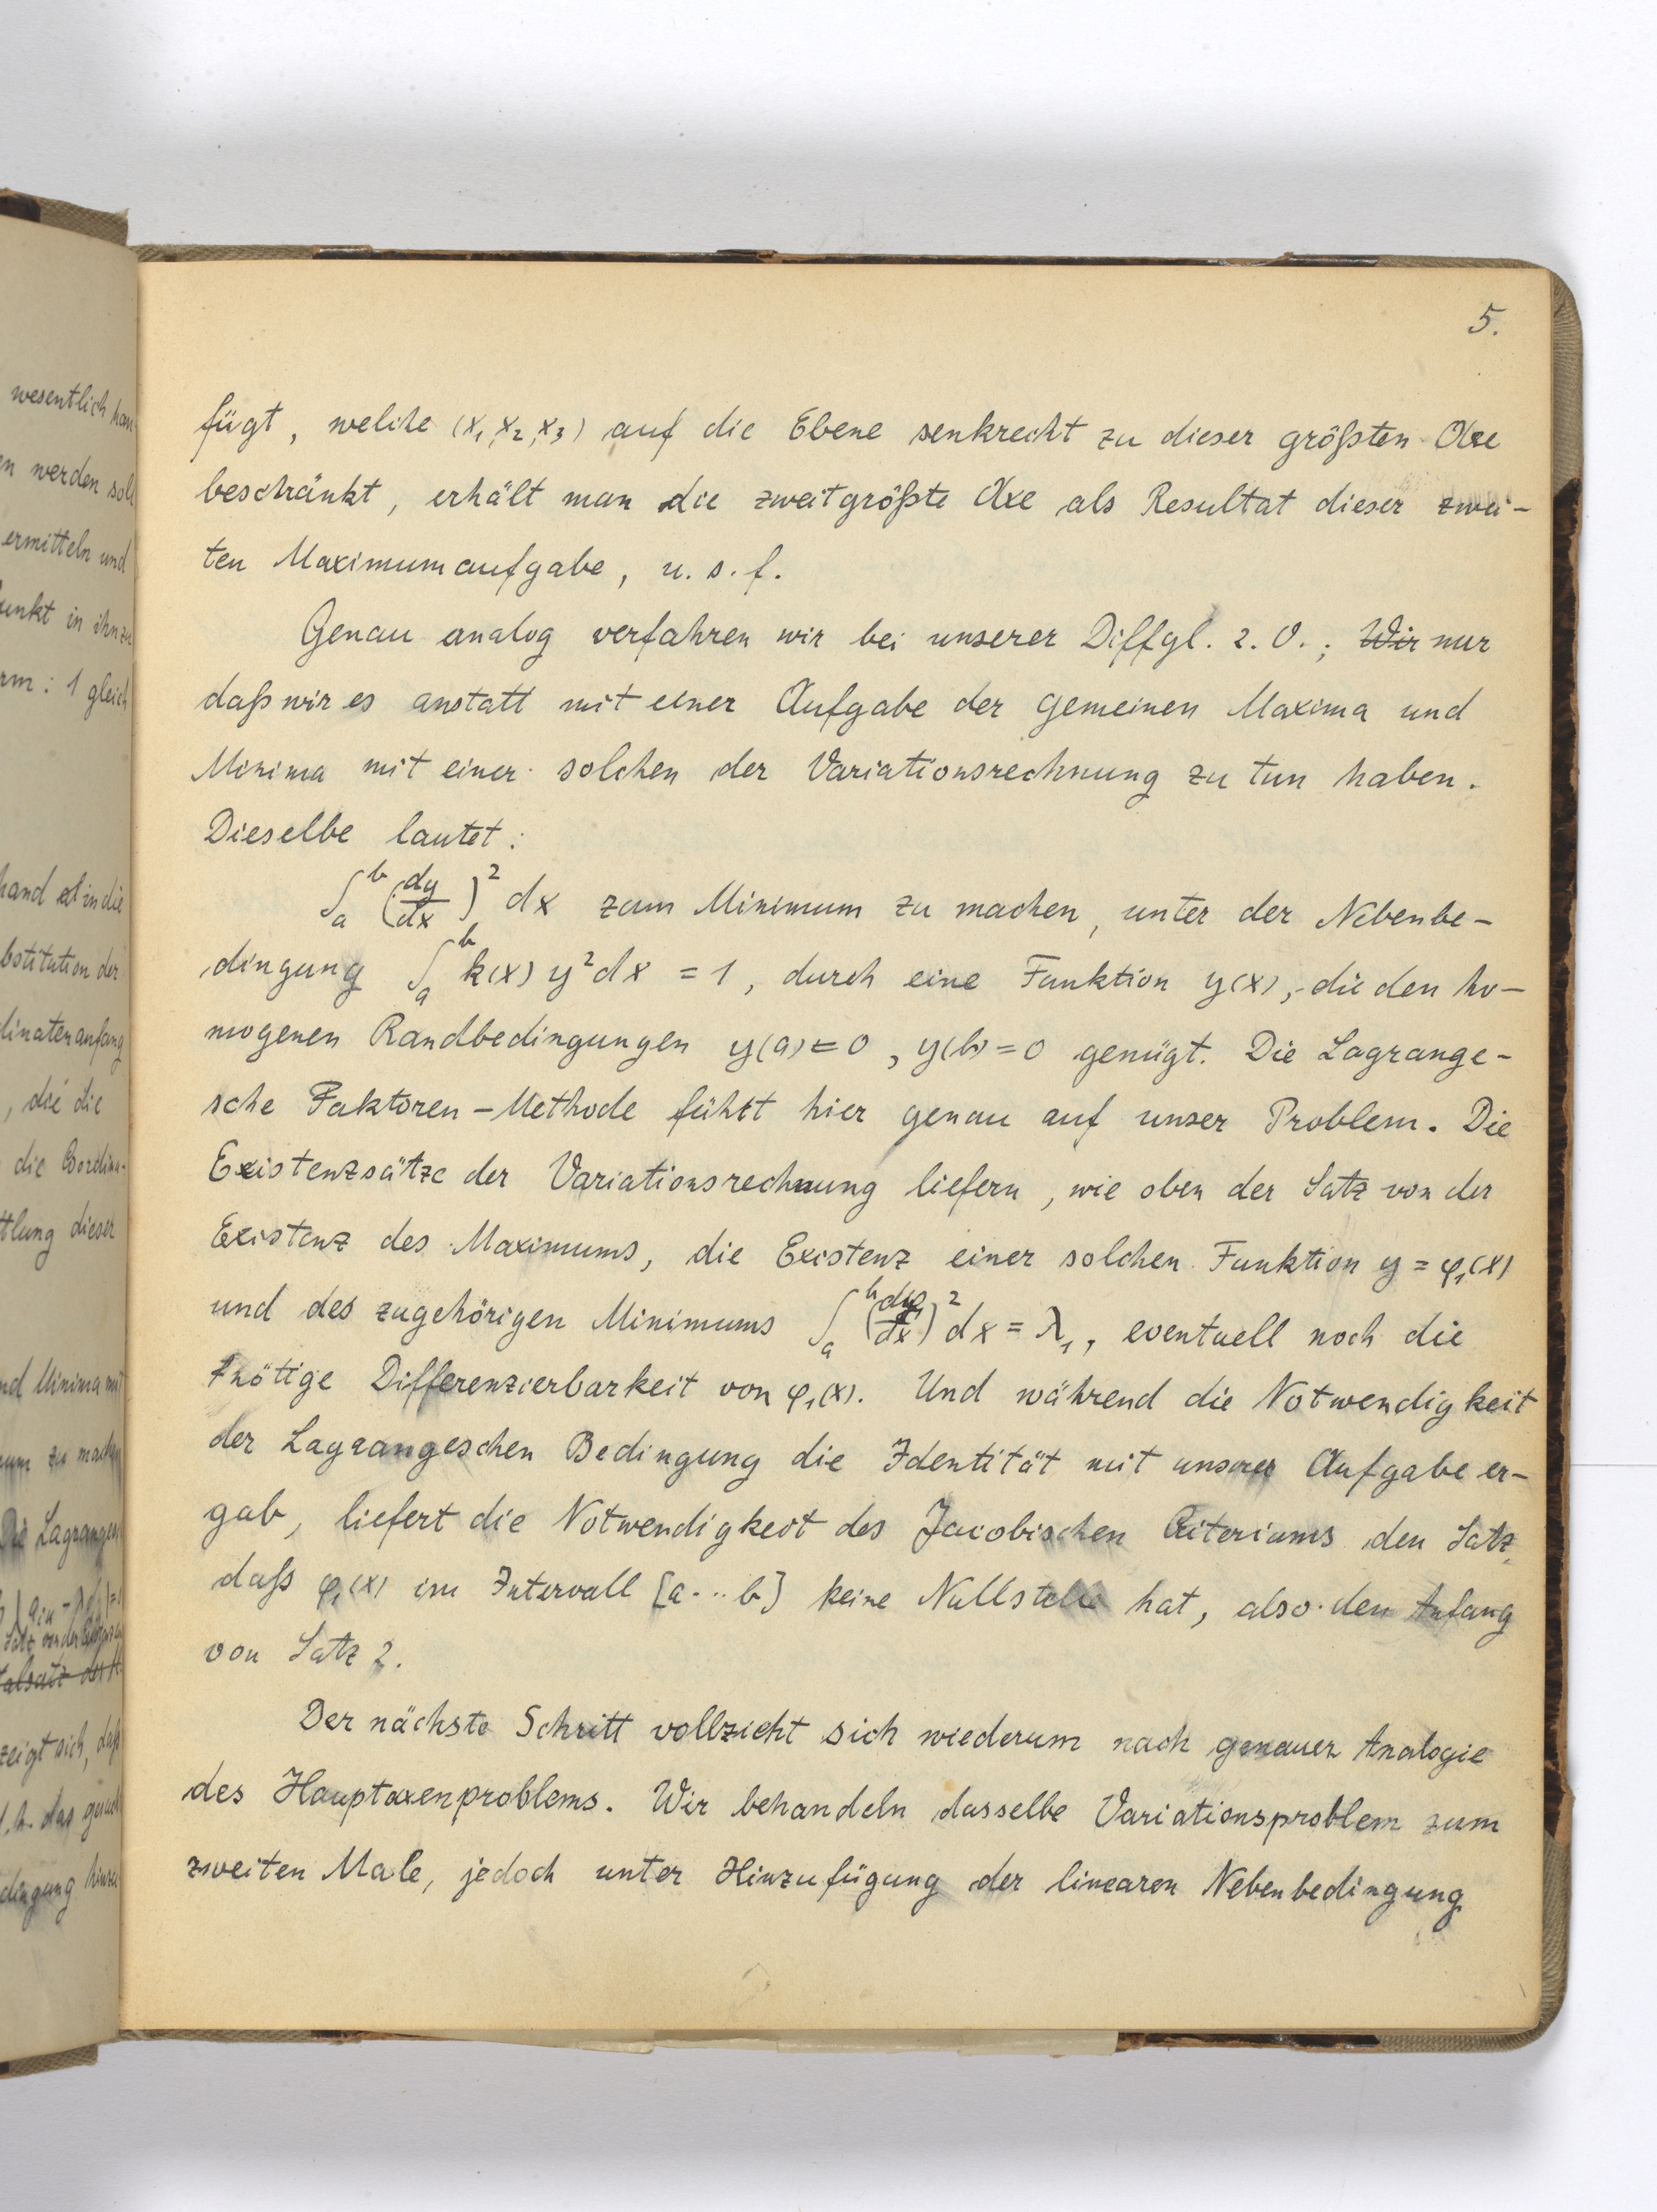 5.
fügt, welche (x₁, x₂, x₃) auf die Ebene senkrecht zu dieser größten Axe
beschränkt, erhält man die zweitgrößte Axe als Resultat dieser zwei-
ten Maximumaufgabe, u. s. f.
Genau analog verfahren wir bei unserer Diffgl. 2. O.; Wir nur
daß wir es anstatt mit einer Aufgabe der gemeinen Maxima und
Minima mit einer solchen der Variationsrechnung zu tun haben.
Dieselbe lautet:
∫ₐᵇ (dy/dx)² dx zum Minimum zu machen, unter der Nebenbe-
dingung ∫ₐᵇ k(x) y² dx = 1, durch eine Funktion y(x), die den ho-
mogenen Randbedingungen y(a) = 0, y(b) = 0 genügt. Die Lagrange-
sche Faktoren-Methode führt hier genau auf unser Problem. Die
Existenzsätze der Variationsrechnung liefern, wie oben der Satz von der
Existenz des Maximums, die Existenz einer solchen Funktion y = φ₁(x)
und des zugehörigen Minimums ∫ₐᵇ (dφ₁/dx)² dx = λ₁, eventuell noch die
nötige Differenzierbarkeit von φ₁(x). Und während die Notwendigkeit
der Lagrangeschen Bedingung die Identität mit unserer Aufgabe er-
gab, liefert die Notwendigkeit des Jacobischen Criteriums den Satz,
daß φ₁(x) im Intervall [a...b] keine Nullstelle hat, also den Anfang
von Satz 2.
Der nächste Schritt vollzieht sich wiederum nach genauer Analogie
des Hauptaxenproblems. Wir behandeln dasselbe Variationsproblem zum
zweiten Male, jedoch unter Hinzufügung der linearen Nebenbedingung